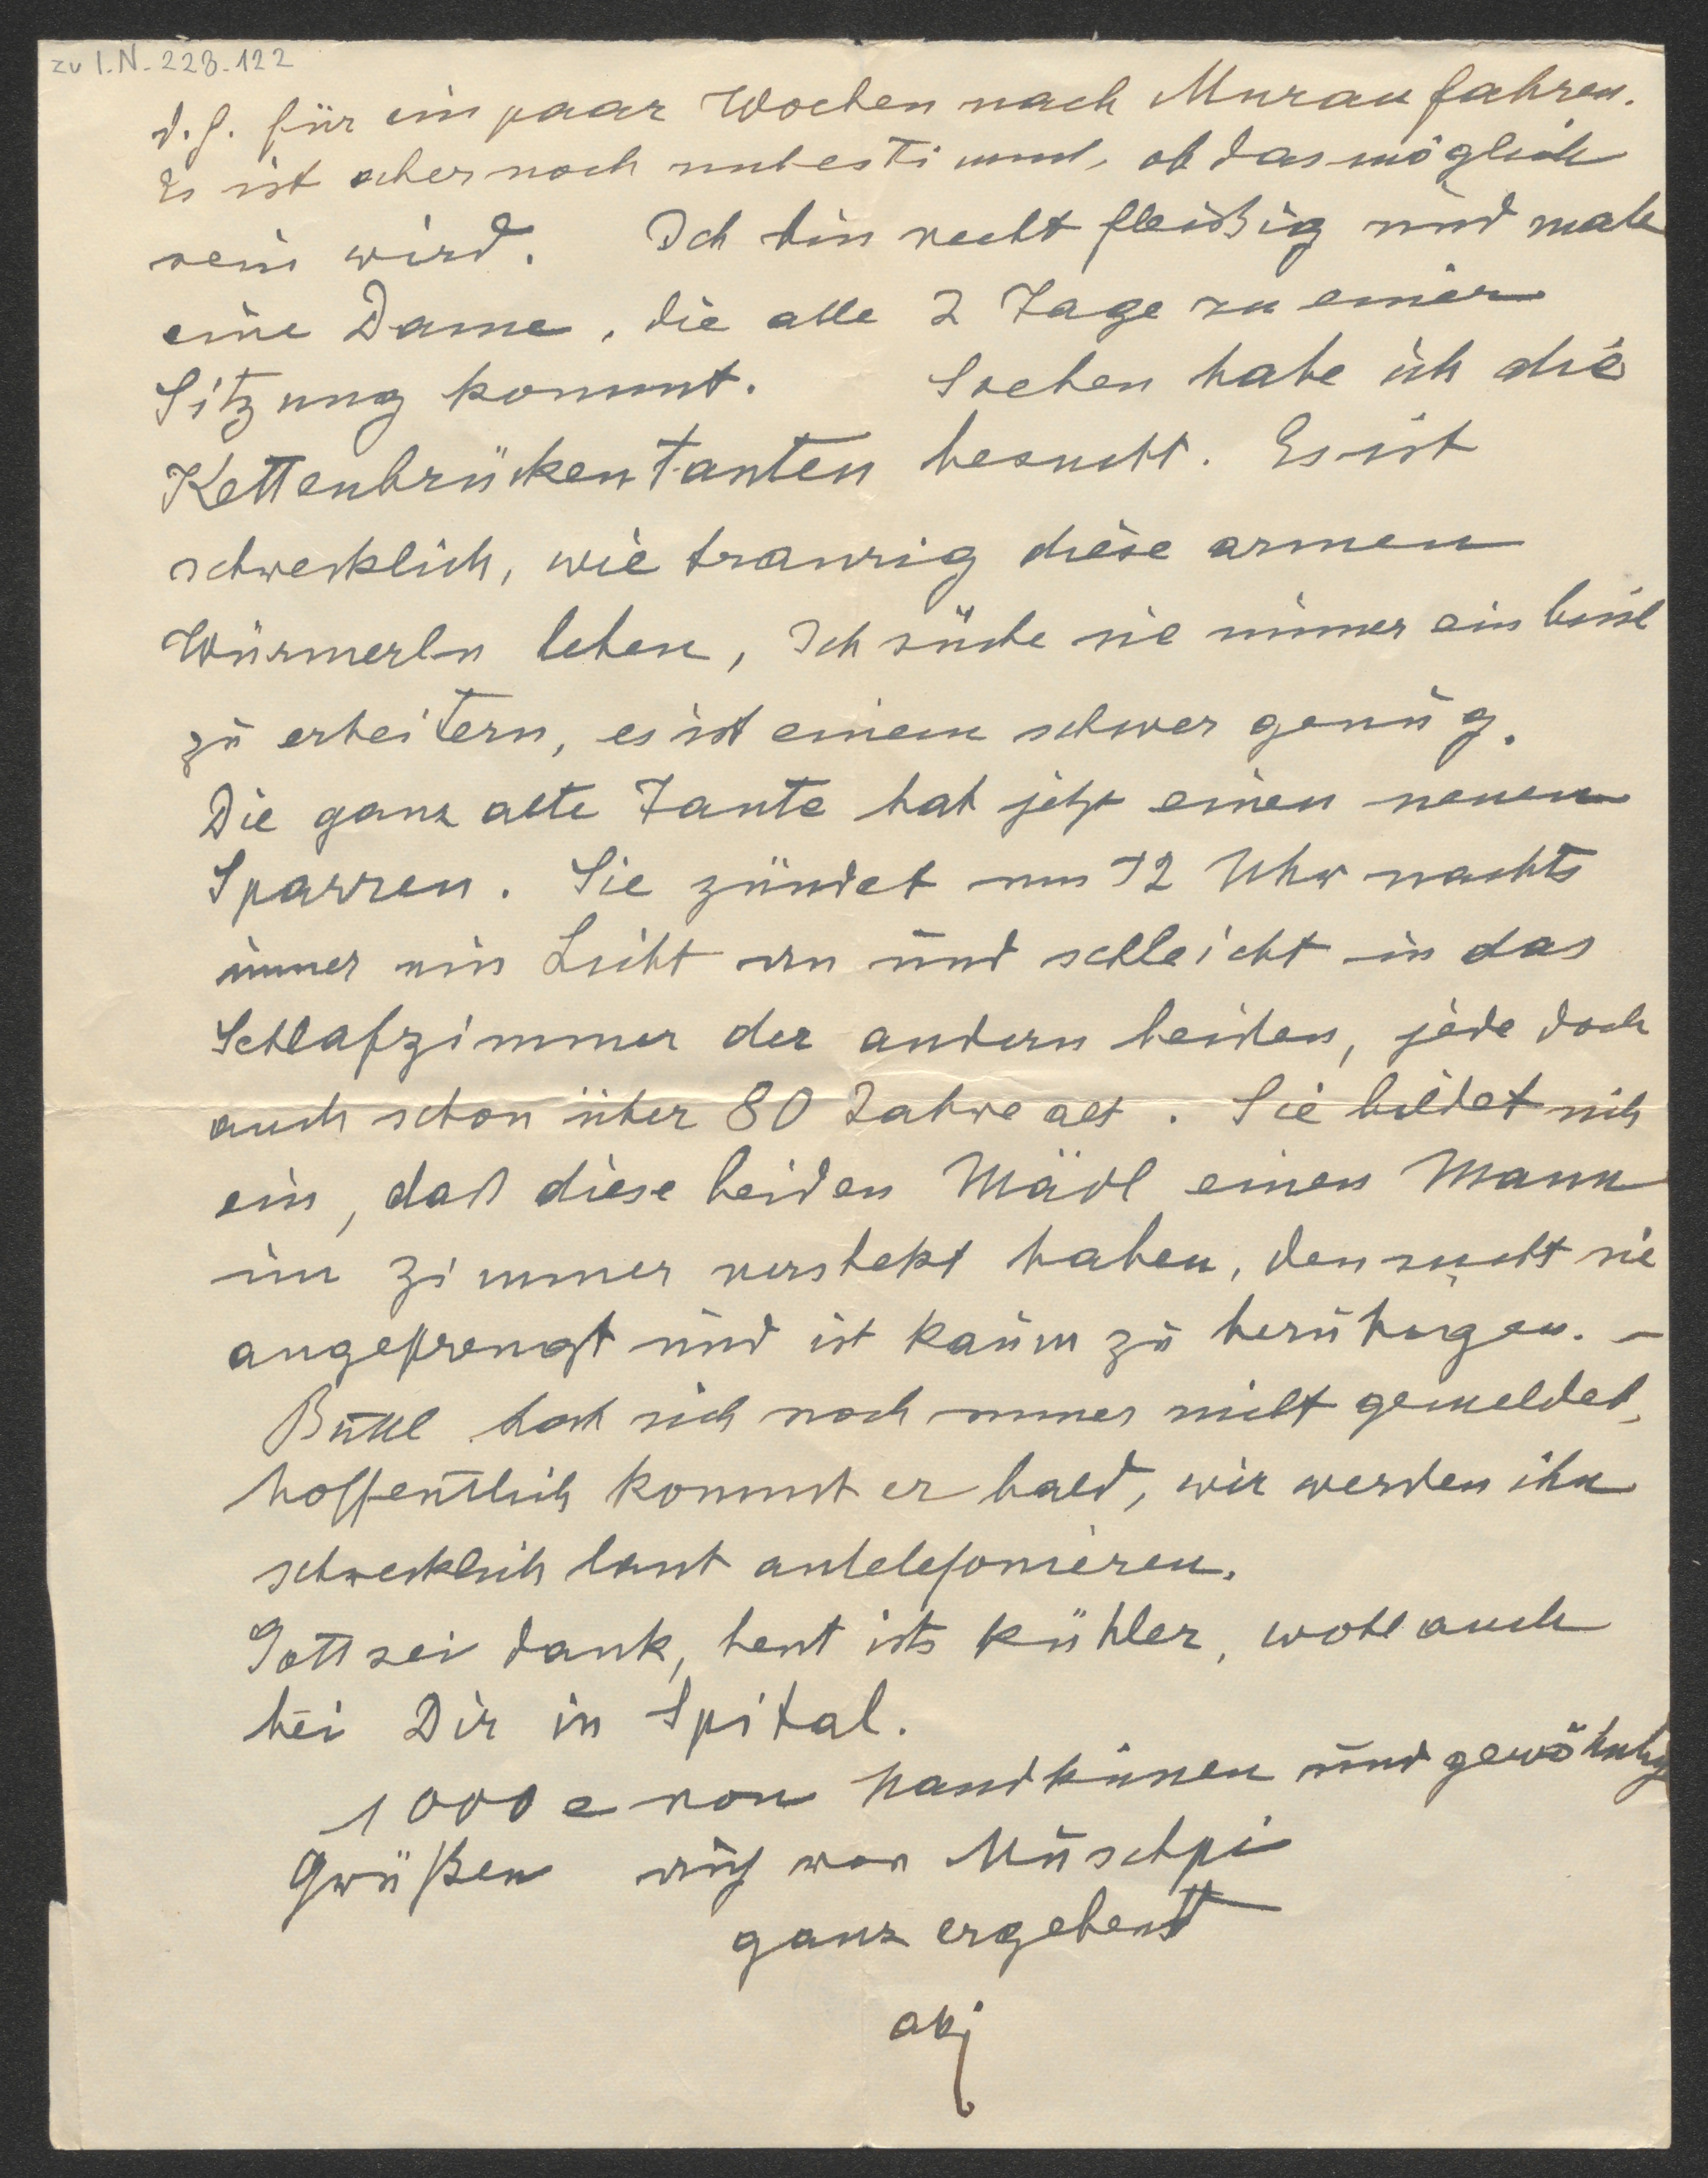 zu I.N. 223.122
d. J. für ein paar Wochen nach Murau fahren.
Es ist aber noch unbestimmt, ob das möglich
sein wird. Ich bin recht fleißig und male
eine Dame, die alle 2 Tage zu einer
Sitzung kommt. Soeben habe ich die
Kettenbrückentanten besucht. Es ist
schrecklich, wie traurig diese armen
Würmerln leben, Ich suche sie immer ein bissl
zu erheitern, es ist einem schwer genug.
Die ganz alte Tante hat jetzt einen neuen
Sparren. Sie zündet um 12 Uhr nachts
immer ein Licht an und schleicht in das
Schlafzimmer der andern beiden, jede doch
auch schon über 80 Jahre alt. Sie bildet sich
ein, daß diese beiden Mädl einen Mann
im Zimmer versteckt haben, den sucht sie
angestrengt und ist kaum zu beruhigen. –
hat sich noch immer nicht gemeldet,
hoffentlich kommt er bald, wir werden ihn
schrecklich laut antelefonieren.
Gott sei dank, heut ists kühler, wohl auch
bei Dir in Spital.
1000e von Handküssen und
Grüßen von Muschpi
ganz ergebenst